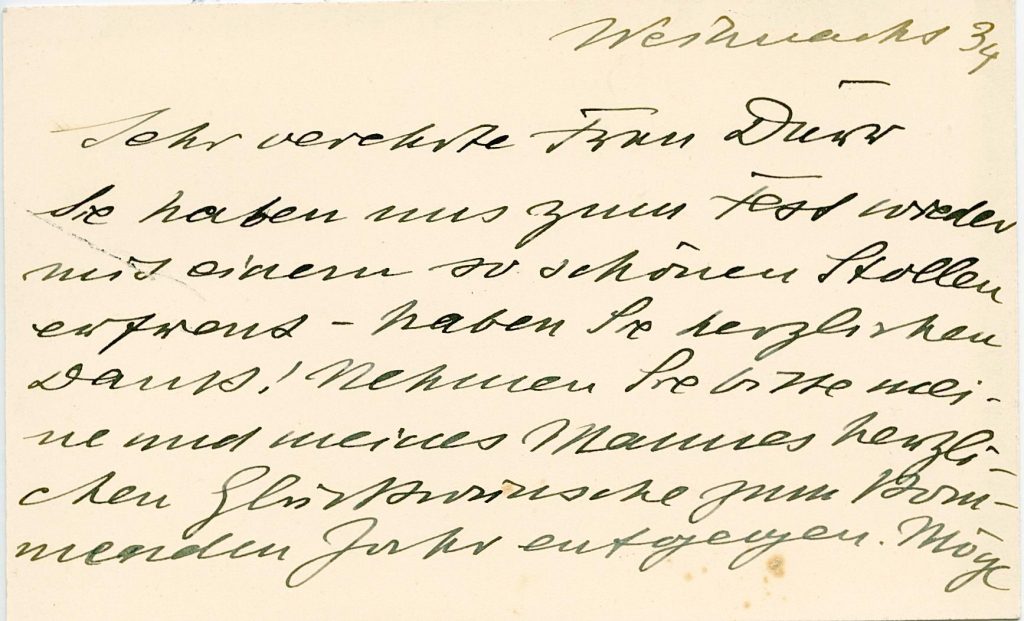 Weihnachts 34
Sehr verehrte Frau Dürr
Sie haben uns zum Fest wieder
mit einem so schönen Stollen
erfreut – haben Sie herzlichen
Dank! Nehmen Sie bitte mei-
ne und meines Mannes herzli-
chen Glückwünsche zum kom-
menden Jahr entgegen. Möge